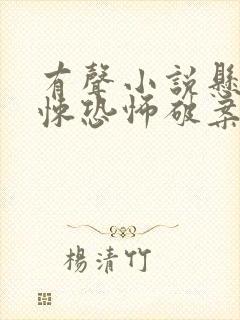 有聲小說懸
悚恐怖破案
楊清竹